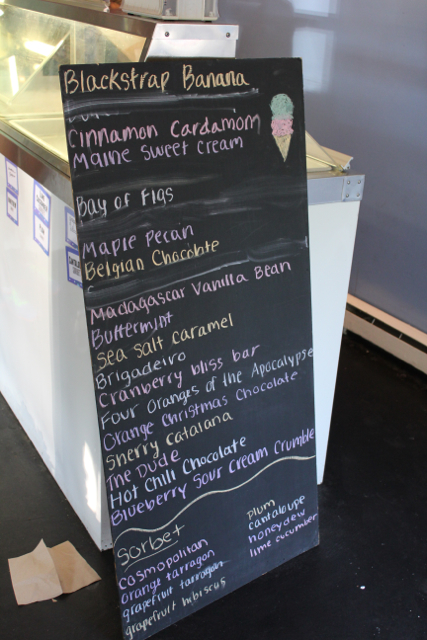 Blackstrap Banana
Cinnamon Cardamom
Maine Sweet Cream
Bay of Figs
Maple Pecan
Belgian Chocolate
Madagascar Vanilla Bean
Buttermint
Sea Salt Caramel
Brigadeiro
Cranberry bliss bar
Four Oranges of the Apocalypse
Orange Christmas Chocolate
Sherry Catalana
The Dude
Hot Chili Chocolate
Blueberry Sour Cream Crumble
Sorbet
cosmopolitan
orange tarragon
grapefruit tarragon
grapefruit hibiscus
plum
cantaloupe
honeydew
lime cucumber